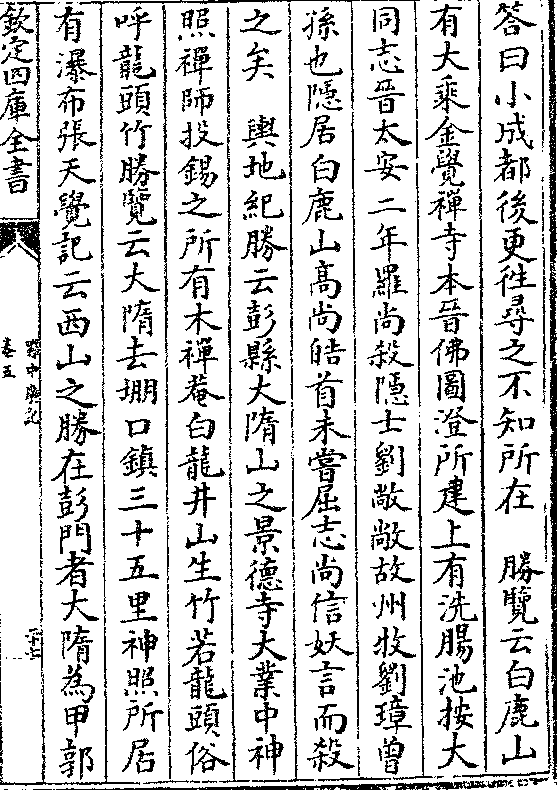 答曰小成都後更徃尋之不知所在　勝覽云白鹿山
有大乘金覺禪寺本晉佛圖澄所建上有洗腸池按大
同志晉太安二年羅尚殺隱士劉敞敞故州牧劉璋曾
孫也隱居白鹿山高尚皓首未嘗屈志尚信妖言而殺
之矣　輿地紀勝云彭縣大隋山之景德寺大業中神
照禪師投錫之所有木禪菴白龍井山生竹若龍頭俗
呼龍頭竹勝覽云大隋去堋口鎮三十五里神照所居
有瀑布張天覺記云西山之勝在彭門者大隋為甲郭
欽定四庫全書
蜀中廣記
卷五
二十七